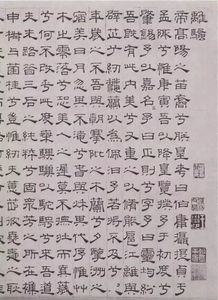 離騷
帝高陽之苗裔兮朕皇考曰伯庸攝提貞于
孟陬兮惟庚寅吾以降皇覽揆余于初度兮
肇錫余以嘉名名余曰正則兮字余曰靈均紛
吾既有此內美兮又重之以脩能扈江離與
辟芷兮紉秋蘭以為佩汨余若將不及兮恐
年歲之不吾與朝搴阰之木蘭兮夕攬洲之
宿莽日月忽其不淹兮春與秋其代序惟草
木之零落兮恐美人之遲暮不撫壯而棄穢
兮何不改乎此度乘騏驥以馳騁兮來吾道
夫先路昔三后之純粹兮固眾芳之所在雜
申椒與菌桂兮豈維紉夫蕙茝